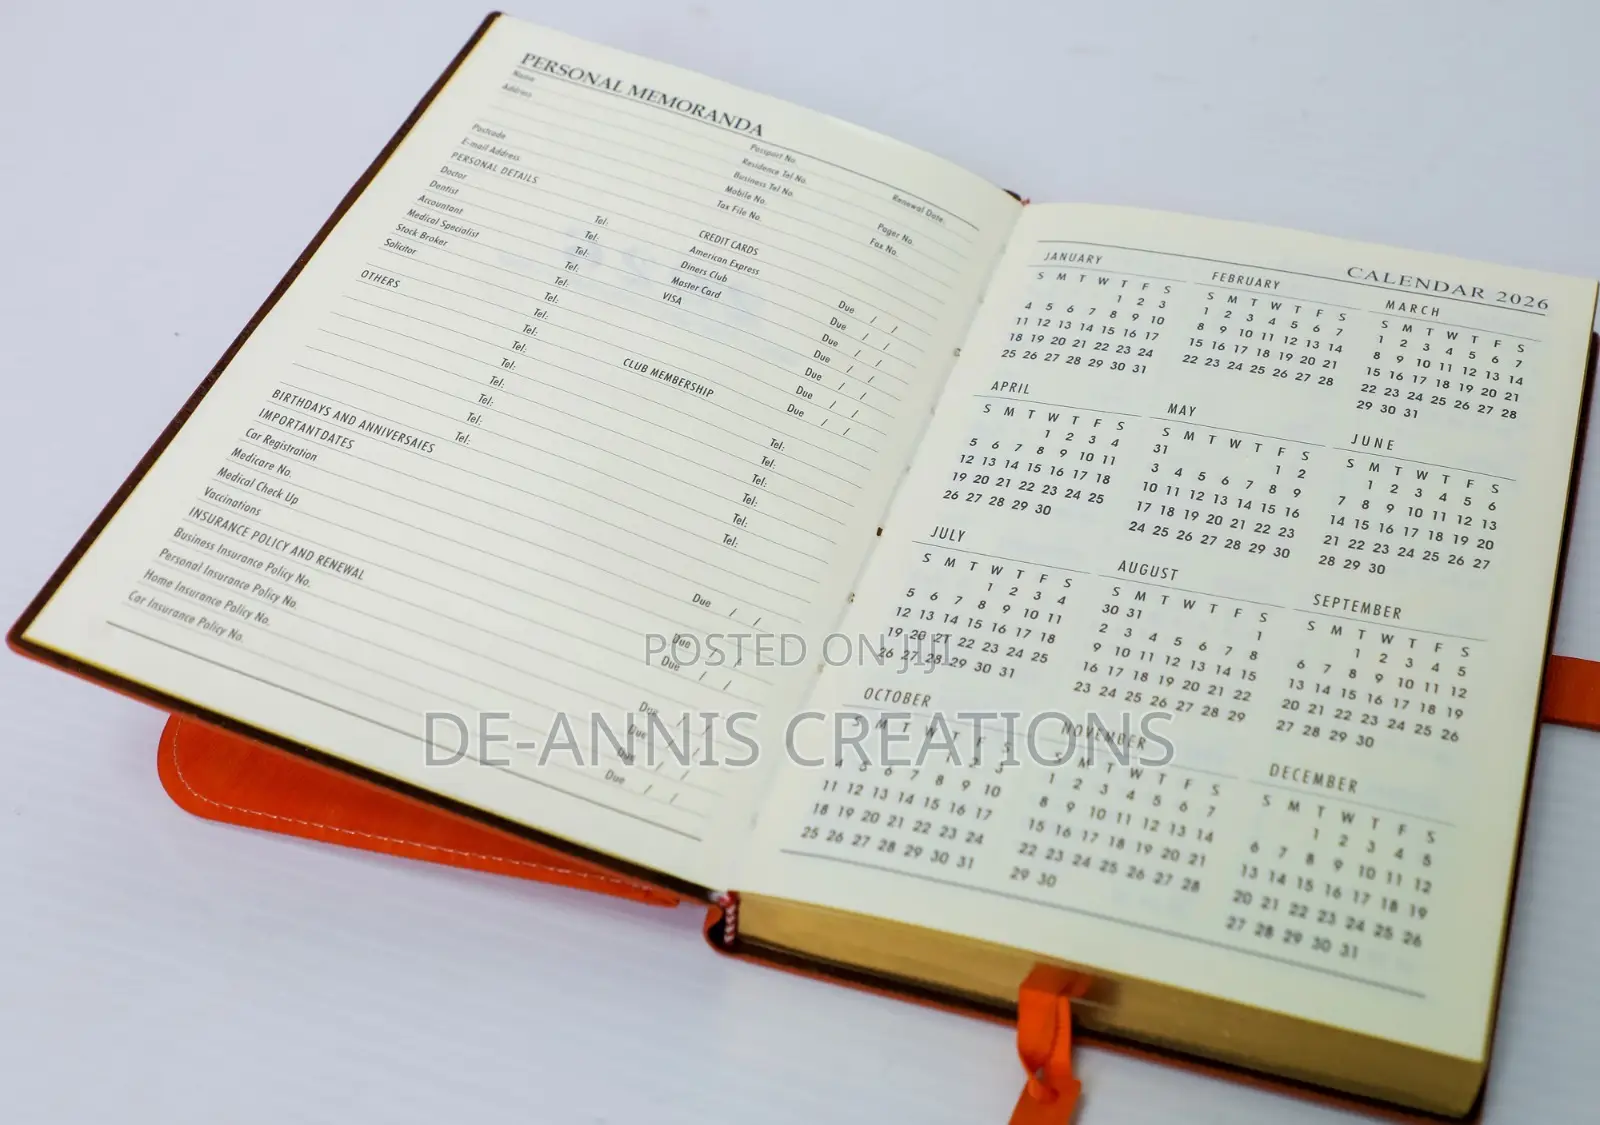 PERSONAL MEMORANDA
Name
Address
Postcode
E-mail Address
Passport No
Residence Tel No.
Business Tel No.
Mobile No.
Tax File No.
Renewal Date
Pager No.
Fax No.
PERSONAL DETAILS
Doctor
Dentist
Accountant
Medical Specialist
Stock Broker
Solicitor
Tel:
Tel:
Tel:
Tel:
Tel:
Tel:
CREDIT CARDS
American Express
Diners Club
Master Card
VISA
Due / /
Due / /
Due / /
Due / /
Due / /
Due / /
Due / /
OTHERS
Tel:
Tel:
Tel:
Tel:
Tel:
Tel:
Tel:
Tel:
CLUB MEMBERSHIP
Tel:
Tel:
Tel:
Tel:
Tel:
Tel:
BIRTHDAYS AND ANNIVERSAIES
IMPORTANT DATES
Car Registration
Medicare No.
Medical Check Up
Vaccinations
Due / /
Due / /
Due / /
INSURANCE POLICY AND RENEWAL
Business Insurance Policy No.
Personal Insurance Policy No.
Home Insurance Policy No.
Car Insurance Policy No.
Due / /
Due / /
Due / /
Due / /
CALENDAR 2026
JANUARY
S M T W T F S
1 2 3
4 5 6 7 8 9 10
11 12 13 14 15 16 17
18 19 20 21 22 23 24
25 26 27 28 29 30 31
FEBRUARY
S M T W T F S
1 2 3 4 5 6 7
8 9 10 11 12 13 14
15 16 17 18 19 20 21
22 23 24 25 26 27 28
MARCH
S M T W T F S
1 2 3 4 5 6 7
8 9 10 11 12 13 14
15 16 17 18 19 20 21
22 23 24 25 26 27 28
29 30 31
APRIL
S M T W T F S
1 2 3 4
5 6 7 8 9 10 11
12 13 14 15 16 17 18
19 20 21 22 23 24 25
26 27 28 29 30
MAY
S M T W T F S
31 1 2
3 4 5 6 7 8 9
10 11 12 13 14 15 16
17 18 19 20 21 22 23
24 25 26 27 28 29 30
JUNE
S M T W T F S
1 2 3 4 5 6
7 8 9 10 11 12 13
14 15 16 17 18 19 20
21 22 23 24 25 26 27
28 29 30
JULY
S M T W T F S
1 2 3 4
5 6 7 8 9 10 11
12 13 14 15 16 17 18
19 20 21 22 23 24 25
26 27 28 29 30 31
AUGUST
S M T W T F S
30 31 1
2 3 4 5 6 7 8
9 10 11 12 13 14 15
16 17 18 19 20 21 22
23 24 25 26 27 28 29
SEPTEMBER
S M T W T F S
1 2 3 4 5
6 7 8 9 10 11 12
13 14 15 16 17 18 19
20 21 22 23 24 25 26
27 28 29 30
OCTOBER
S M T W T F S
1 2 3
4 5 6 7 8 9 10
11 12 13 14 15 16 17
18 19 20 21 22 23 24
25 26 27 28 29 30 31
NOVEMBER
S M T W T F S
1 2 3 4 5 6 7
8 9 10 11 12 13 14
15 16 17 18 19 20 21
22 23 24 25 26 27 28
29 30
DECEMBER
S M T W T F S
1 2 3 4 5
6 7 8 9 10 11 12
13 14 15 16 17 18 19
20 21 22 23 24 25 26
27 28 29 30 31
POSTED ON JIJI
DE-ANNIS CREATIONS